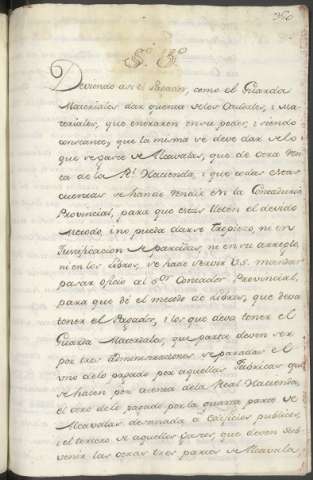 360
S.r 3.o
Deviendo asi el Pagador, como el Guarda
Materiales dar quenta de los Caudales, i Ma-
teriales, que entraren en su poder, i siendo
constante, que la misma se deve dar de lo
que se gaste de Alcavalas, que de otra Ren
ta de la Rl. Hacienda, i que todas estas
cuentas se han de rendir en la Contaduria
Provincial, para que estas lleven el devido
metodo, i no pueda darse tropiezo, ni en
Justificacion de partidas, ni en su arreglo,
ni en los libros, se hade servir V.S. mandar
pasar oficio al S.or Contador Provincial,
para que dé el metodo de libros, que deva
tener el Pagador, i los que deva tener el
Guarda Materiales, que parece deven ser
por tres administraciones separadas el
uno de lo pagado por aquellas Fabricas que
se hacen por cuenta de la Real Hacienda,
el otro de lo pagado por la quarta parte de
Alcavalas destinada a edificios publicos,
i el tercero de aquellos gastos, que deven
venir las otras tres partes de Alcavala